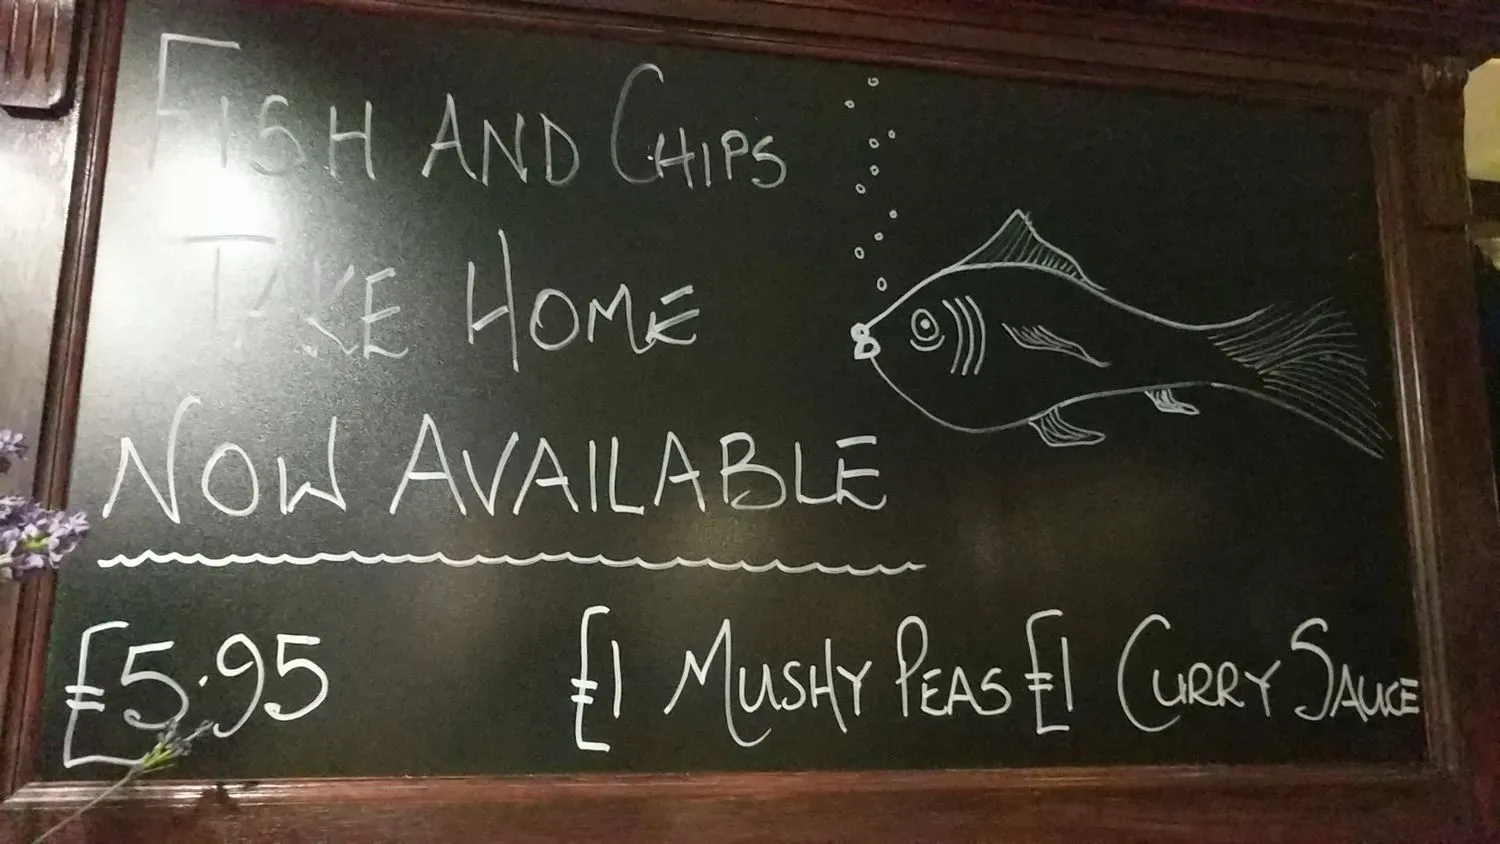 FISH AND CHIPS
TAKE HOME
NOW AVAILABLE
£5.95 £1 MUSHY PEAS £1 CURRY SAUCE